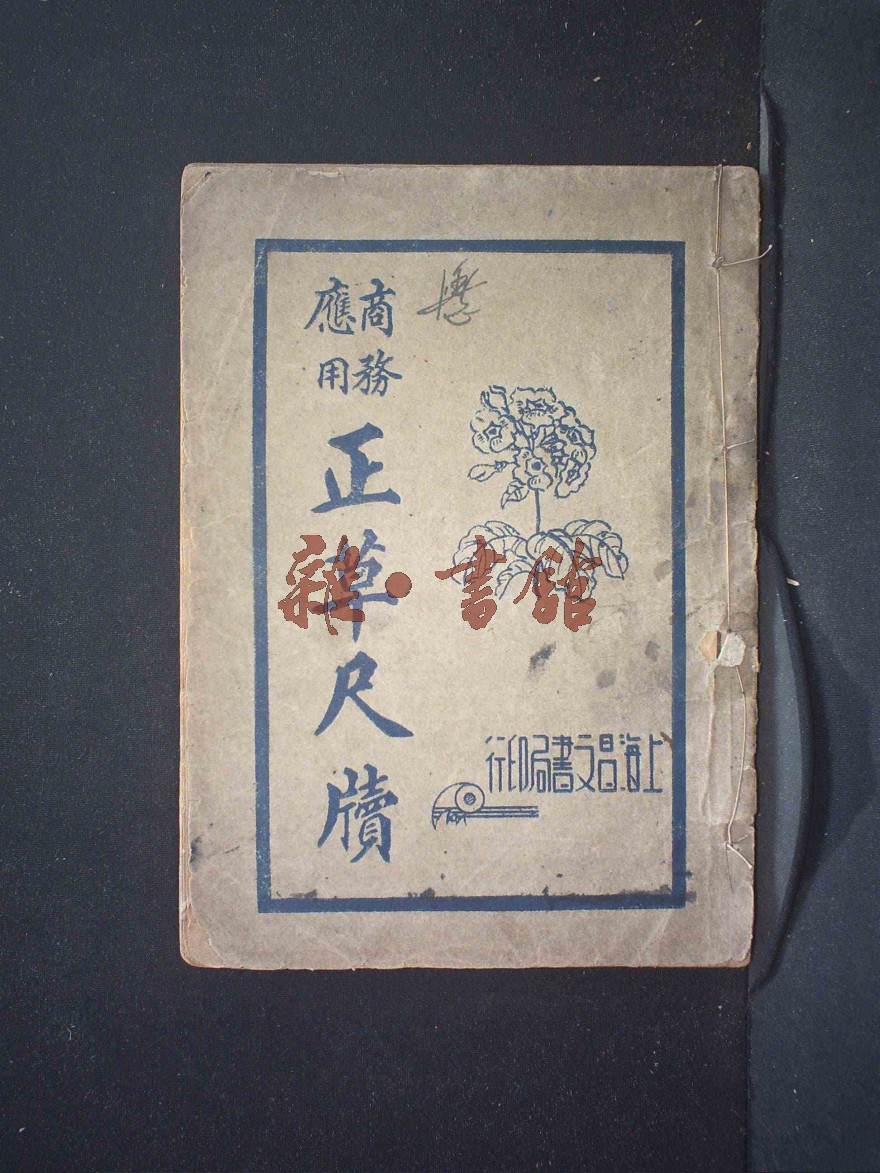 商務
應用
正草尺牘
上海昌文書局印行
雜·書館